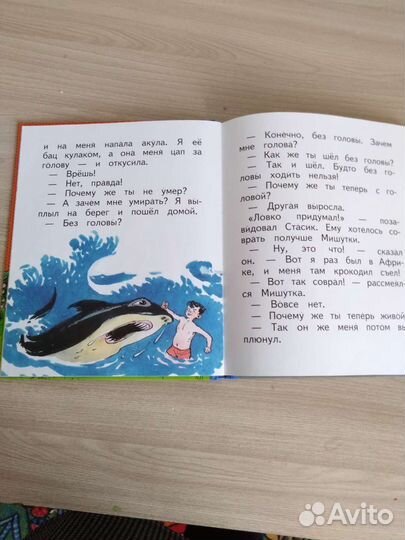 и на меня напала акула. Я её
бац кулаком, а она меня цап за
голову — и откусила.
— Врёшь!
— Нет, правда!
— Почему же ты не умер?
— А зачем мне умирать? Я вы-
плыл на берег и пошёл домой.
— Без головы?
— Конечно, без головы. Зачем
мне голова?
— Как же ты шёл без головы?
— Так и шёл. Будто без го-
ловы ходить нельзя!
— Почему же ты теперь с го-
ловой?
— Другая выросла.
«Ловко придумал!» — поза-
видовал Стасик. Ему хотелось со-
врать получше Мишутки.
— Ну, это что! — сказал
он. — Вот я раз был в Афри-
ке, и меня там крокодил съел!
— Вот так соврал! — рассмеял-
ся Мишутка.
— Вовсе нет.
— Почему же ты теперь живой
— Так он же меня потом вы
плюнул.
Avito